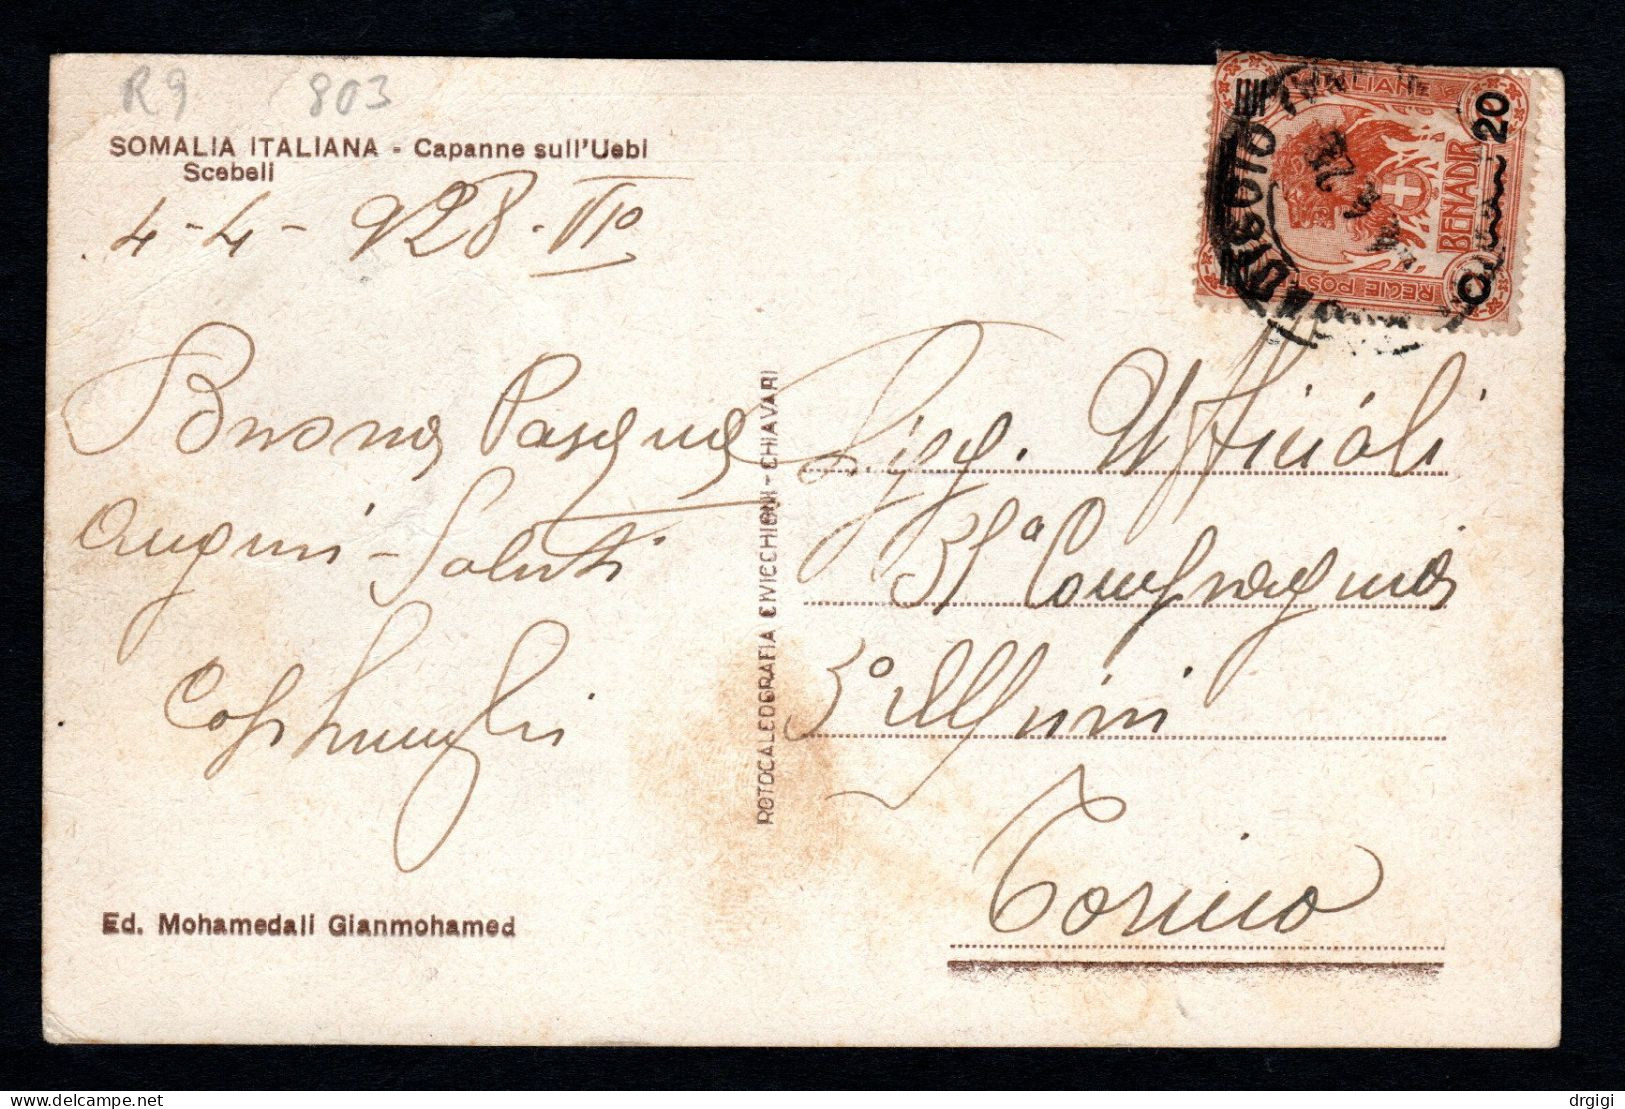 R9 803
SOMALIA ITALIANA - Capanne sull'Uebi
Scebeli
4-4-928-VI°
Buona Pasqua
Auguri - Saluti
Ed. Mohamedali Gianmohamed
ROTOCALCOGRAFIA CIVICCHIONI - CHIAVARI
POSTE ITALIANE
BENADIR
REGIE POST
20
MOGADISCIO
Sigg. Ufficiali
31ª Compagnia
3° Alpini
Torino
drgigi